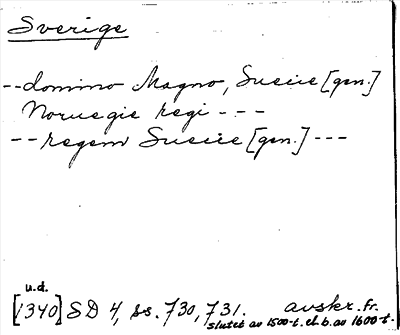 Sverige
--domino Magno, Suecie [gen.]
Noruegie regi ---
--regem Suecie [gen.] ---
u.d.
[1340] SD 4, ss. 730, 731. avskr. fr.
slutet av 1500-t. el. b. av 1600-t.